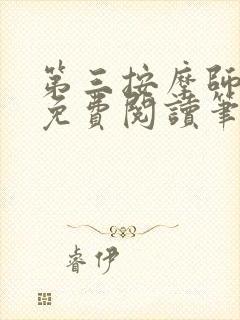 第三按摩師
免費閱讀筆
睿伊